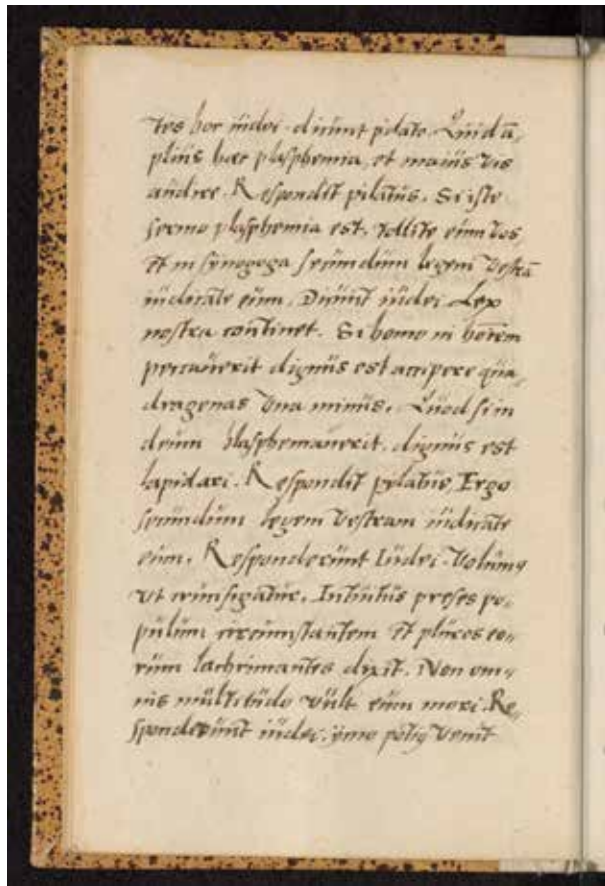 tes hoc iudei dicunt pilato. Quid ā,
plius hac plasphemia, et maius vis
audire. Respondit pilatus. Si iste
sermo plasphemia est, tollite eum vos
et in synogoga secundum legem vestrā
iudicate eum. Dicunt iudei. Lex
nostra continet. Si homo in hoīem
peccauerit dignus est accipere qua,
dragenas vna minus. Quod si in
deum blasphemauerit, dignus est
lapidari. Respondit pylatus, Ergo
secundum legem vestram iudicate
eum. Responderunt Iudei. Volumꝯ
vt crucifigatur. Intuitus preses po,
pulum circumstantem et plures eo,,
rum lachrimantes dixit. Non om,
nis multitudo vult eum mori. Re,
sponderunt iudei. ymo potiꝯ venit